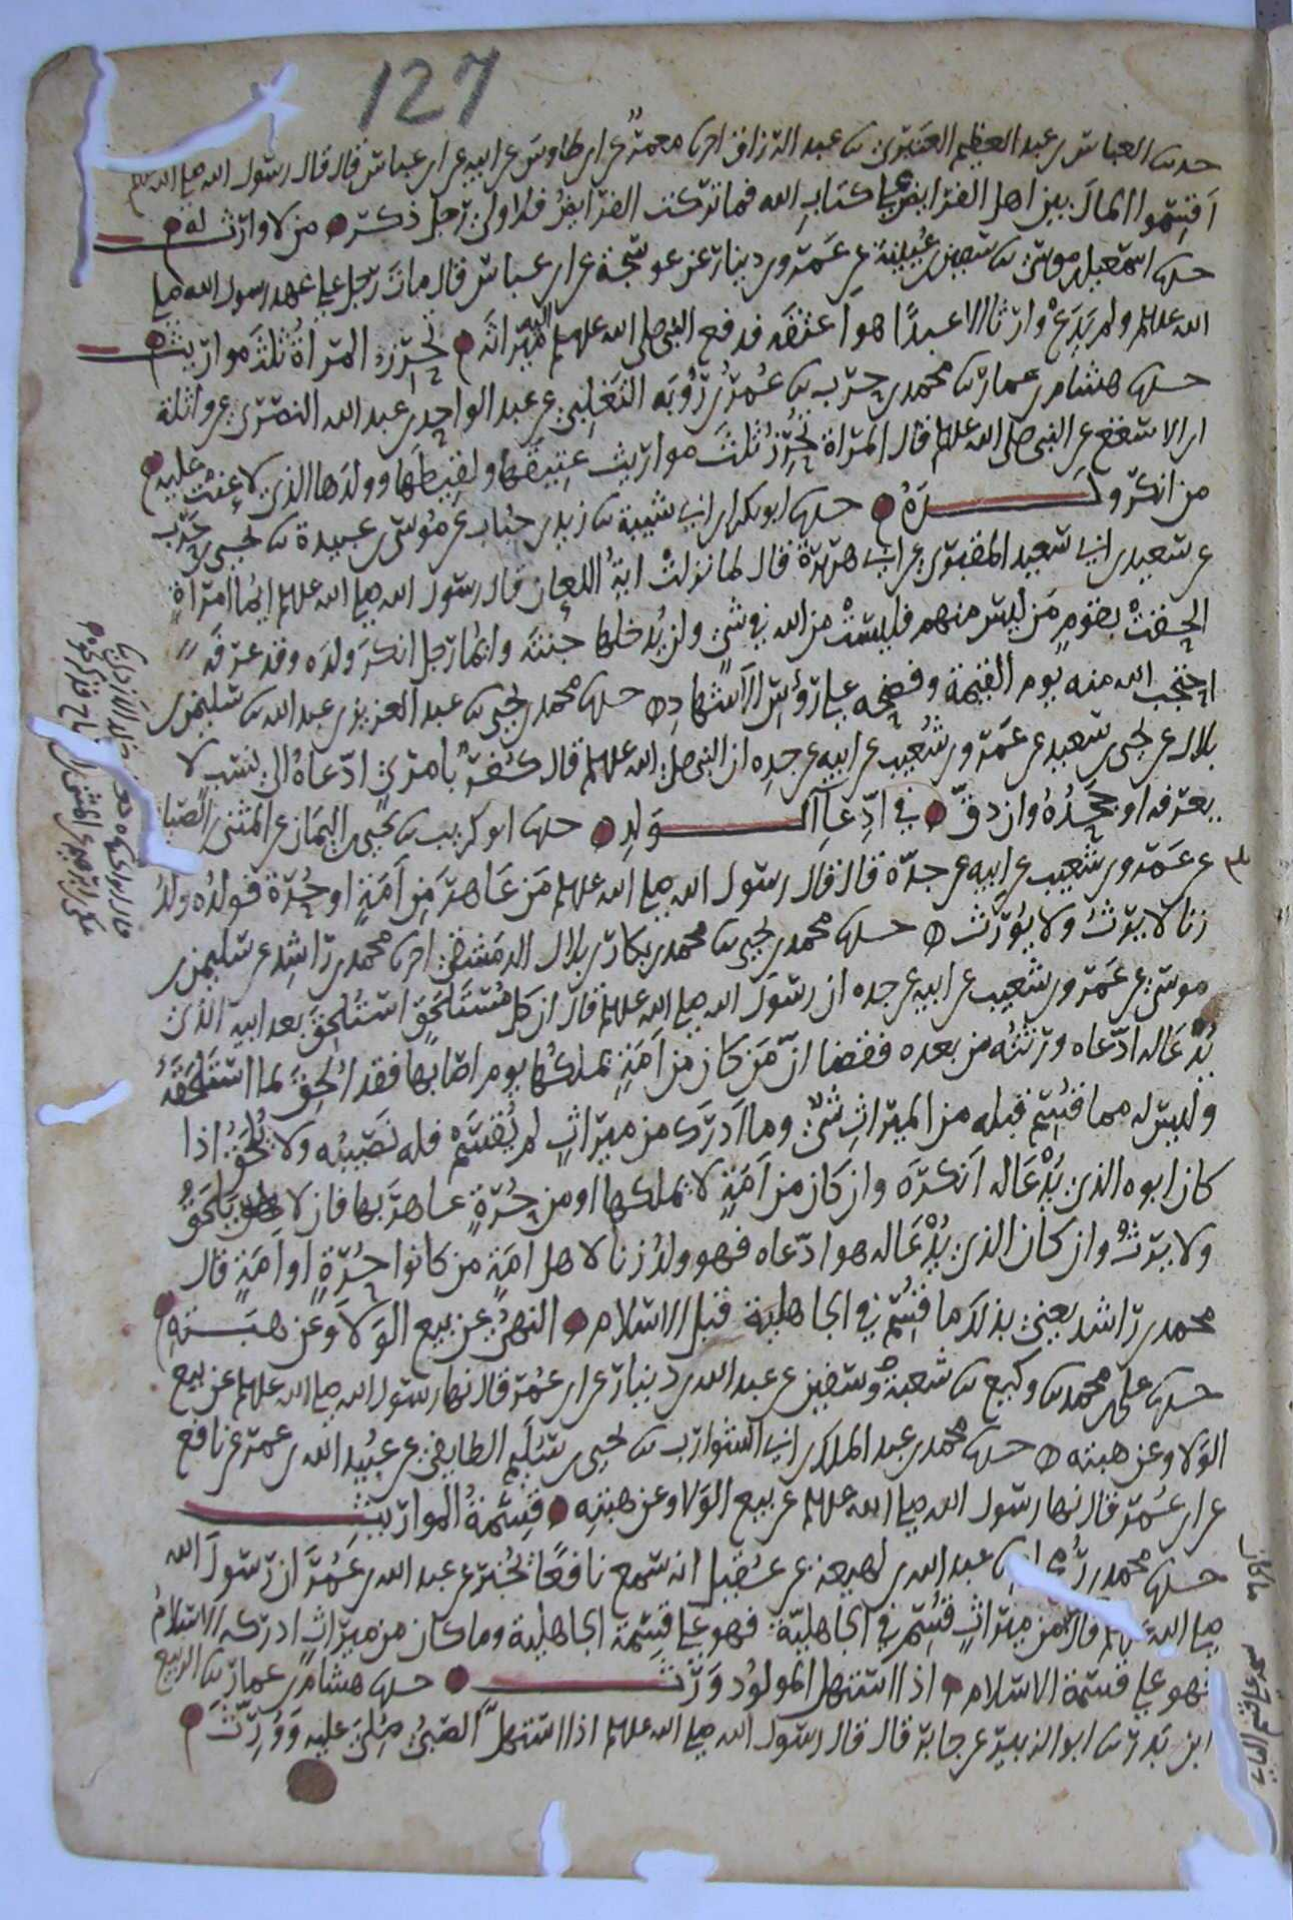 127
حدثنا العباس بن عبد العظيم العنبري ثنا عبد الرزاق اخبرنا معمر عن ابن طاوس عن ابيه عن ابن عباس قال قال رسول الله صلى الله علم
اقسموا المال بين اهل الفرايض على كتاب الله فما تركت الفرايض فلاولى رجل ذكر من لا وارث له
حدثنا اسمعيل بن موسى ثنا سفين بن عيينة عن عمرو بن دينار عن عوسجة عن ابن عباس قال مات رجل على عهد رسول الله صلى
الله علم ولم يدع وارثا الا عبدا هو اعتقه فدفع النبي صلى الله علم اليه ميراثه تحرز المراة ثلث مواريث
حدثنا هشام بن عمار ثنا محمد بن حرب ثنا عمر بن رؤبه التغلبي عن عبد الواحد بن عبد الله النصري عن واثلة
ابن الاسقع عن النبي صلى الله علم قال المراة تحرز ثلث مواريث عتيقها ولقيطها وولدها الذي لاعنت عليه
من انكر ولده حدثنا ابو بكر بن ابي شيبة ثنا زيد بن حباب عن موسى بن عبيدة ثنا يحيى بن حرب
عن سعيد بن ابي سعيد المقبري عن ابي هريرة قال لما نزلت اية اللعان قال رسول الله صلى الله علم ايما امراة
الحقت بقوم من ليس منهم فليست من الله في شي ولن يدخلها جنته وايما رجل انكر ولده وقد عرفه
احتجب الله منه يوم القيمة وفضحه على رؤس الاشهاد حدثنا محمد بن يحيى ثنا عبد العزيز بن عبد الله ثنا سليمن بن
بلال عن يحيى بن سعيد عن عمرو بن شعيب عن ابيه عن جده ان النبي صلى الله علم قال كفر بامرئ ادعاه الى نسب لا
يعرفه او جحده وان دق في ادعا الولد حدثنا ابو كريب ثنا يحيى بن اليمان عن المثنى بن الصباح
عن عمرو بن شعيب عن ابيه عن جده قال قال رسول الله صلى الله علم من عاهر من امة او حرة فولده ولد
زنا لا يرث ولا يورث حدثنا محمد بن يحيى ثنا محمد بن بكار بن بلال الدمشقي اخبرنا محمد بن راشد عن سليمن بن
موسى عن عمرو بن شعيب عن ابيه عن جده ان رسول الله صلى الله علم قال ان كل مستلحق استلحق بعد ابيه الذي
يدعا له ادعاه ورثته من بعده فقضا ان من كان من امة يملكها يوم اصابها فقد لحق بما استلحقه
وليس له مما قسم قبله من الميراث شي وما ادرك من ميراث لم يقسم فله نصيبه ولا يلحق اذا
كان ابوه الذي يدعا له انكره وان كان من امة لا يملكها او من حرة عاهر بها فانه لا يلحق
ولا يرث وان كان الذي يدعا له هو ادعاه فهو ولد زنا لاهل امه من كانوا حرة او امة قال
محمد بن راشد يعني بذلك ما قسم في الجاهلية قبل الاسلام النهي عن بيع الولا وعن هبته
حدثنا علي بن محمد ثنا وكيع ثنا شعبة وسفين عن عبد الله بن دينار عن ابن عمر قال نها رسول الله صلى الله علم عن بيع
الولا وعن هبته حدثنا محمد بن عبد الملك بن ابي الشوارب ثنا يحيى بن سليم الطايفي عن عبيد الله بن عمر عن نافع
عن ابن عمر قال نها رسول الله صلى الله علم عن بيع الولا وعن هبته قسمة المواريث
حدثنا محمد بن رمح عبد الله بن لهيعة عن عقيل انه سمع نافعا يخبر عن عبد الله بن عمر ان رسول الله
صلى الله علم قال من ميراث قسم في الجاهلية فهو على قسمة الجاهلية وما كان من ميراث ادركه الاسلام
فهو على قسمة الاسلام اذا استهل المولود ورث حدثنا هشام بن عمار ثنا الربيع
ابن بدر ثنا ابو الزبير عن جابر قال قال رسول الله صلى الله علم اذا استهل الصبي صلي عليه وورث
ما كان